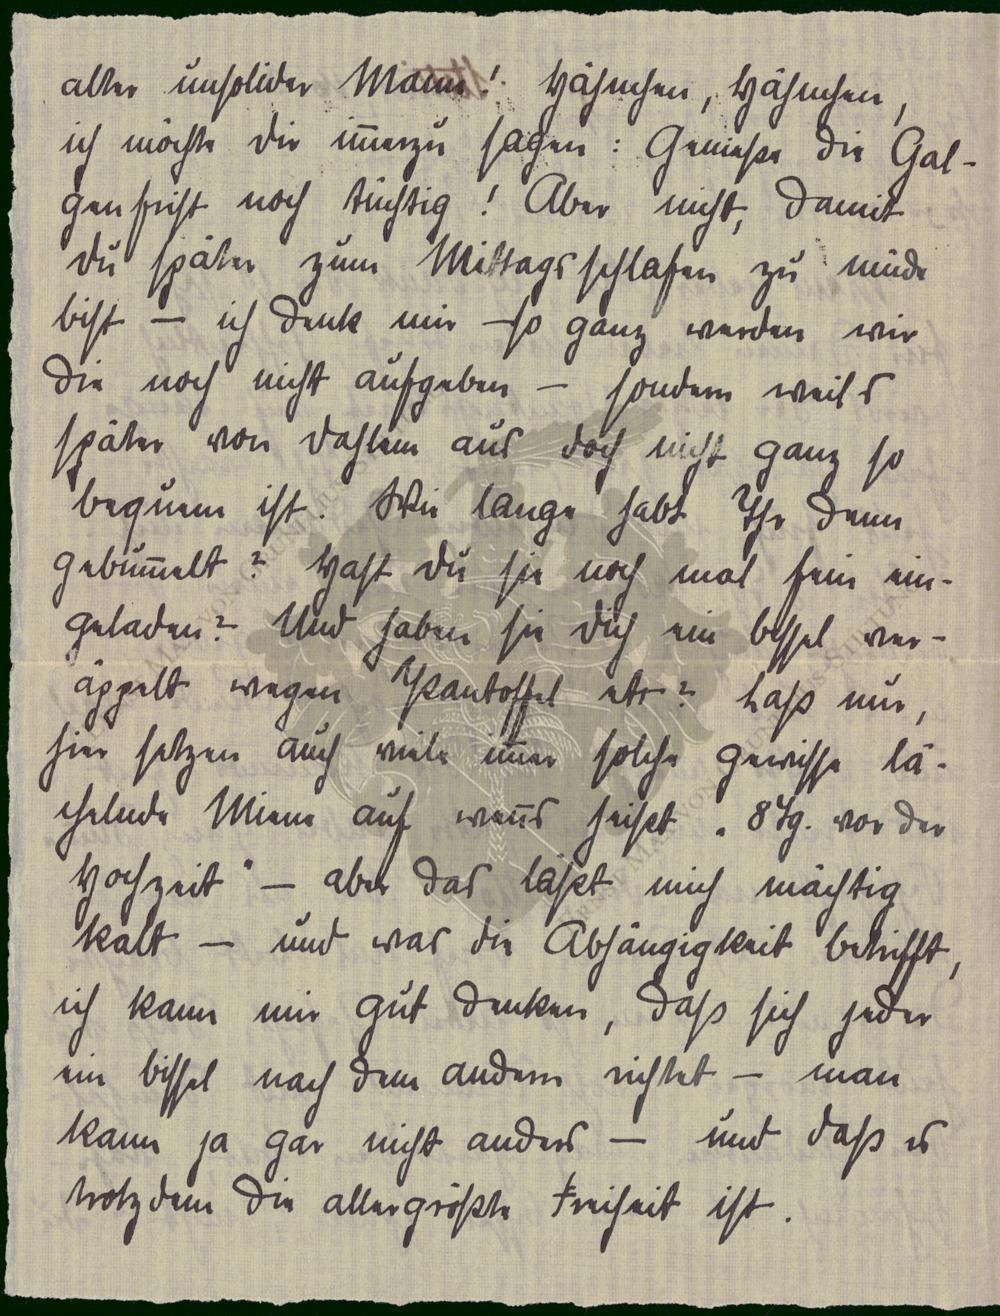 alter unsolider Mann! Hähnchen, Hähnchen,
ich möchte dir im̅erzu sagen: Genieße die Gal-
genfrist noch tüchtig! Aber nicht, damit
du später zum Mittagsschlafen zu müde
bist — ich denk mir — so ganz werden wir
die noch nicht aufgeben — sondern weils
später von Dahlem aus doch nicht ganz so
bequem ist. Wie lange habt Ihr denn
gebum̅elt? Hast du sie noch mal fein ein-
geladen? Und haben sie dich ein bissel ver-
äppelt wegen Pantoffel etc? Laß nur,
hier setzen auch viele im̅er solche gewisse lä-
chelnde Miene auf wen̅s heißt „8 Tg. vor der
Hochzeit" — aber das läßt mich mächtig
kalt — und was die Abhängigkeit betrifft,
ich kann mir gut denken, daß sich jeder
ein bissel nach dem andern richtet — man
kann ja gar nicht anders — und daß es
trotzdem die allergrößte Freiheit ist.